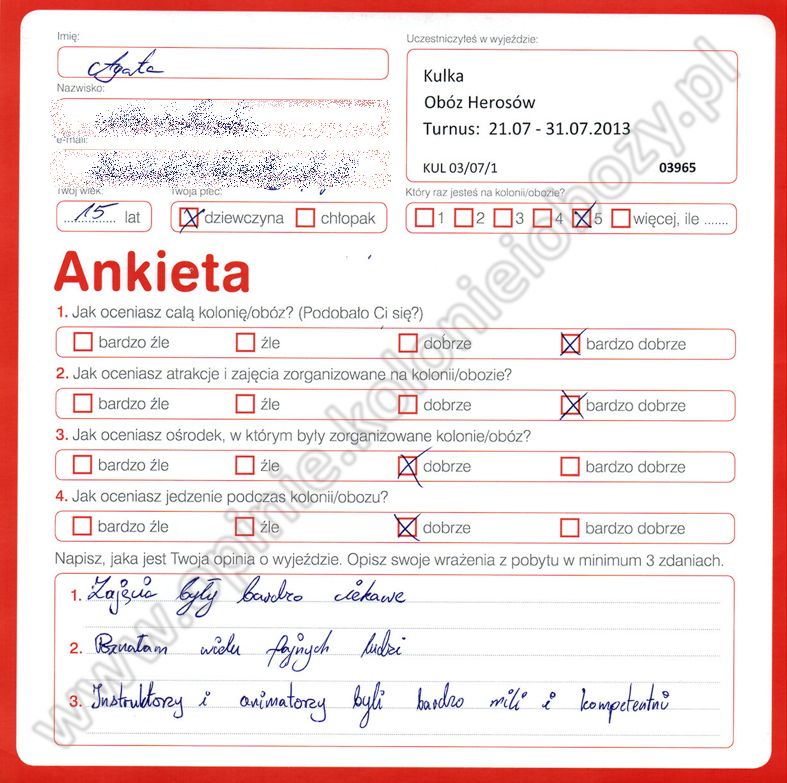 Imię:
Agata
Uczestniczyłeś w wyjeździe:
Kulka
Obóz Herosów
Turnus: 21.07 - 31.07.2013
KUL 03/07/1 03965
Nazwisko:
e-mail:
Twój wiek:
15 lat
Twoja płeć:
dziewczyna chłopak
Który raz jesteś na kolonii/obozie?
1 2 3 4 5 więcej, ile .......
Ankieta
1. Jak oceniasz całą kolonię/obóz? (Podobało Ci się?)
bardzo źle źle dobrze bardzo dobrze
2. Jak oceniasz atrakcje i zajęcia zorganizowane na kolonii/obozie?
bardzo źle źle dobrze bardzo dobrze
3. Jak oceniasz ośrodek, w którym były zorganizowane kolonie/obóz?
bardzo źle źle dobrze bardzo dobrze
4. Jak oceniasz jedzenie podczas kolonii/obozu?
bardzo źle źle dobrze bardzo dobrze
Napisz, jaka jest Twoja opinia o wyjeździe. Opisz swoje wrażenia z pobytu w minimum 3 zdaniach.
1. Zajęcia były bardzo ciekawe
2. Poznałam wielu fajnych ludzi
3. Instruktorzy i animatorzy byli bardzo mili i kompetentni
www.opinie.kolonieiobozy.pl